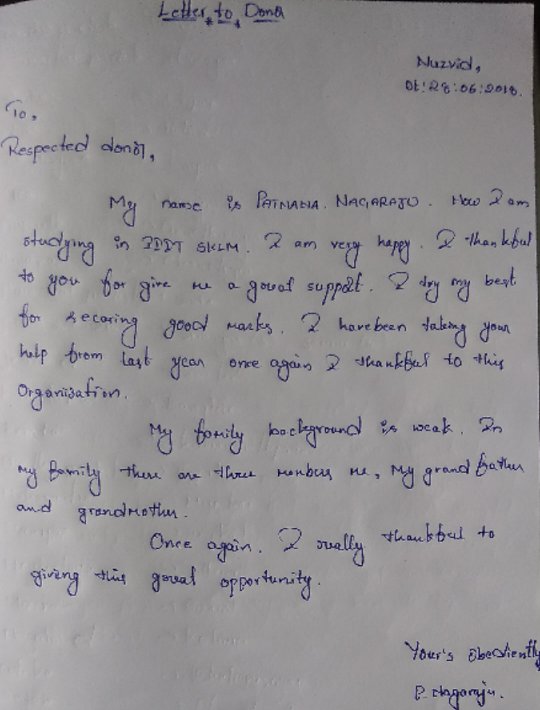 Letter to Donor
Nuzvid,
Dt:28:06:2018.
To,
Respected donor,
My name is PATNANA. NAGARAJU. Now I am
studying in IIIT SKLM. I am very happy. I thankful
to you for give me a goreat support. I try my best
for securing good marks. I havebeen taking your
help from last year once again I thankful to this
Organisation.
My family background is weak. In
my family there are three members me, My grand father
and grandmother.
Once again. I really thankful to
giving this goreat opportunity.
Your's obediently
P. Nagaraju.